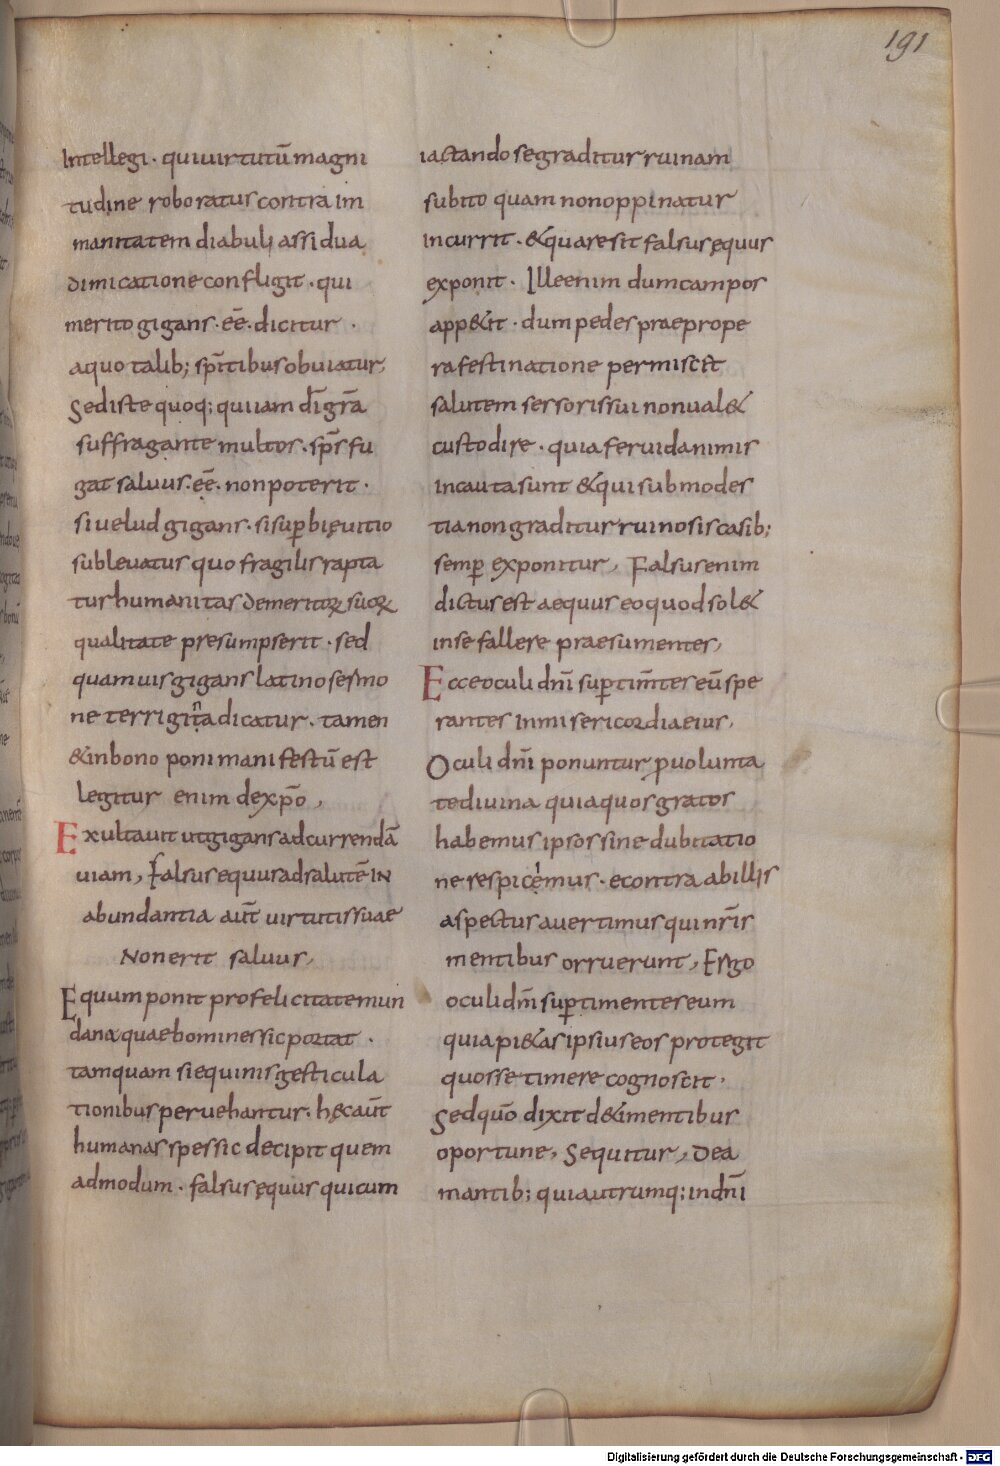 191
Intellegi · quiuirtutū magni
tudine roboratus contra im
manitatem diabuli assidua
dimicatione confligit · qui
merito gigans · eē · dicitur ·
aquo talib; spītibus obuiatur,
Sediste quoq; quiiam dī grā
suffragante multos · spīs fu
gat saluus · eē · nonpoterit ·
siuelud gigans · sisup̄bię uitio
subleuatus quo fragilis rapta
tur humanitas demeritoꝝ suoꝝ
qualitate presumpserit · sed
quamuis gigans latino sermo
ne terrigina dicatur · tamen
&inbono poni manifestū est
legitur enim dexp̄o,
Exultauit utgigans adcurrendā
uiam, Falsus equus adsalutē IN
abundantia aūt uirtutis suae
Nonerit saluus,
Equum ponit profelicitate mun
dana quae homines sic portat ·
tamquam siequinis gesticula
tionibus peruehantur; hęc aūt
humanas spes sic decipit quem
admodum · falsus ęquus quicum
iactando segraditur ruinam
subito quam nonoppinatur
incurrit · &quare sit falsus ęquus
exponit · Ille enim dum campos
app&it · dum pedes praeprope
ra festinatione permiscet
salutem sessoris sui nonual&
custodire · quia feruidanimis
incauta sunt &qui submodes
tia non graditur ruinosis casib;
semp̄ exponitur, Falsus enim
dictus est aequus eo quod sol&
inse fallere praesumentes,
Ecce oculi dn̄i sup̄ timentes eū spe
rantes Inmisericordia eius,
Oculi dn̄i ponuntur p̄uolunta
te diuina quia quos gratos
habemus ipsos sine dubitatio
ne respicimus · econtra abillis
aspectus auertimus qui nr̄is
mentibus orruerunt, Ergo
oculi dn̄i sup̄ timentes eum
quia pi&as ipsius eos protegit
quos se timere cognoscit ·
Sed quō dixit d&imentibus
oportune, Sequitur, Dea
mantib; quia utrumq; in dn̄i
Digitalisierung gefördert durch die Deutsche Forschungsgemeinschaft - DFG